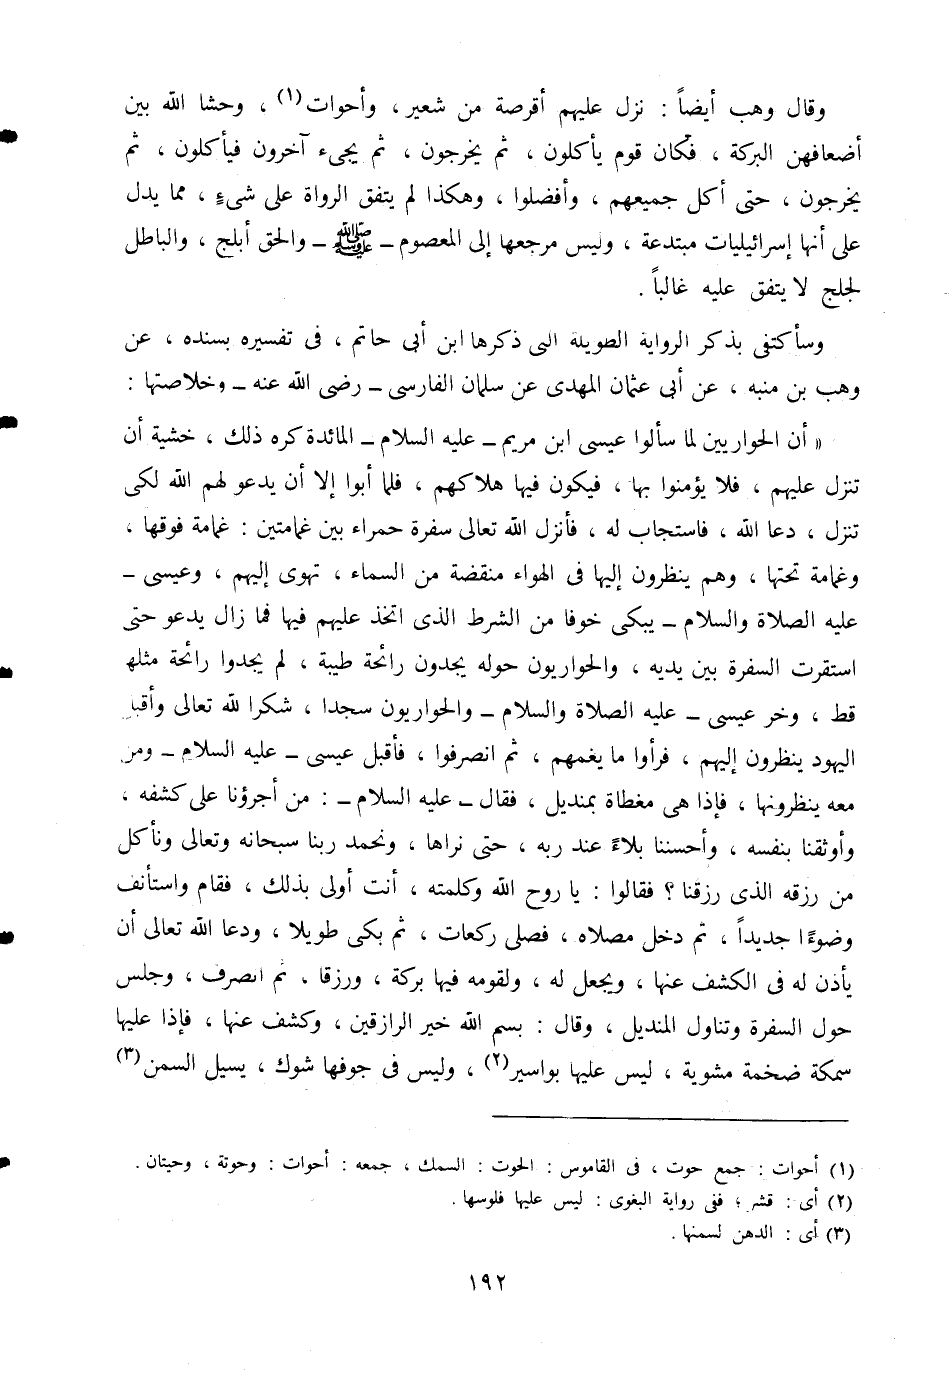 وقال وهب أيضاً : نزل عليهم أقرصة من شعير ، وأحوات(١) ، وحشا الله بين
أضعافهن البركة ، فكان قوم يأكلون ، ثم يخرجون ، ثم يجىء آخرون فيأكلون ، ثم
يخرجون ، حتى أكل جميعهم ، وأفضلوا ، وهكذا لم يتفق الرواة على شىءٍ ، مما يدل
على أنها إسرائيليات مبتدعة ، وليس مرجعها إلى المعصوم ــ ﷺ ــ والحق أبلج ، والباطل
لجلج لا يتفق عليه غالباً .
وسأكتفى بذكر الرواية الطويلة التى ذكرها ابن أبى حاتم ، فى تفسيره بسنده ، عن
وهب بن منبه ، عن أبى عثمان المهدى عن سلمان الفارسى ــ رضى الله عنه ــ وخلاصتها :
« أن الحواريين لما سألوا عيسى ابن مريم ــ عليه السلام ــ المائدة كره ذلك ، خشية أن
تنزل عليهم ، فلا يؤمنوا بها ، فيكون فيها هلاكهم ، فلما أبوا إلا أن يدعو لهم الله لكى
تنزل ، دعا الله ، فاستجاب له ، فأنزل الله تعالى سفرة حمراء بين غمامتين : غمامة فوقها ،
وغمامة تحتها ، وهم ينظرون إليها فى الهواء منقضة من السماء ، تهوى إليهم ، وعيسى ــ
عليه الصلاة والسلام ــ يبكى خوفا من الشرط الذى اتخذ عليهم فيها فما زال يدعو حتى
استقرت السفرة بين يديه ، والحواريون حوله يجدون رائحة طيبة ، لم يجدوا رائحة مثلها
قط ، وخر عيسى ــ عليه الصلاة والسلام ــ والحواريون سجدا ، شكرا لله تعالى وأقبل
اليهود ينظرون إليهم ، فرأوا ما يغمهم ، ثم انصرفوا ، فأقبل عيسى ــ عليه السلام ــ ومن
معه ينظرونها ، فإذا هى مغطاة بمنديل ، فقال ــ عليه السلام ــ : من أجرؤنا على كشفه ،
وأوثقنا بنفسه ، وأحسننا بلاءً عند ربه ، حتى نراها ، ونحمد ربنا سبحانه وتعالى ونأكل
من رزقه الذى رزقنا ؟ فقالوا : يا روح الله وكلمته ، أنت أولى بذلك ، فقام واستأنف
وضوءًا جديداً ، ثم دخل مصلاه ، فصلى ركعات ، ثم بكى طويلا ، ودعا الله تعالى أن
يأذن له فى الكشف عنها ، ويجعل له ، ولقومه فيها بركة ، ورزقا . ثم انصرف ، وجلس
حول السفرة وتناول المنديل ، وقال : بسم الله خير الرازقين ، وكشف عنها ، فإذا عليها
سمكة ضخمة مشوية ، ليس عليها بواسير(٢) ، وليس فى جوفها شوك ، يسيل السمن(٣)
(١) أحوات : جمع حوت ، فى القاموس : الحوت : السمك ، جمعه : أحوات : وحوتة ، وحيتان .
(٢) أى : قشر ؛ ففى رواية البغوى : ليس عليها فلوسها .
(٣) أى : الدهن لسمنها .
١٩٢